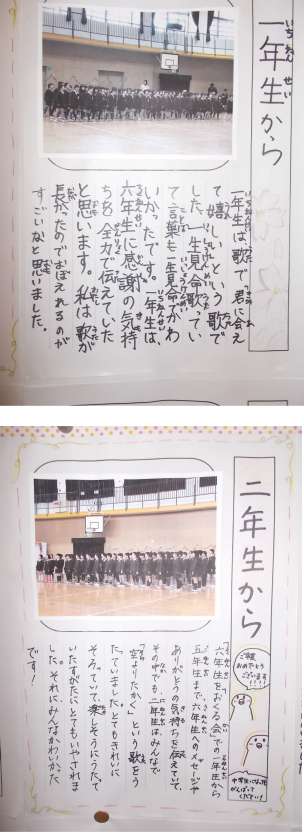 一年生から
いち ねん せい
一年生は、歌で君に会え
て嬉しいという歌で
した。一生見命歌ってい
て言葉も一生見命でかわ
いかったです。一年生は、
六年生に感謝の気持
ちを全力で伝えていた
と思います。私は歌が
長かったのでおぼえれるのが
すごいなと思いました。
二年生から
「六年生をおくる会」での一年生から
五年生まで、六年生へのメッセージや
ありがとうの気持ちを伝えていて、
その中でも、二年生はみんなで
「空よりたかく」という歌をう
たっていました。とてもきれいに
そろっていて、楽しそうにうたって
いたすがたにとてもいやされま
した。それに、みんなかわいかった
です!
ご卒業
おめでとう
ございます
!!!!
中学生になっても
がんばって
ください!